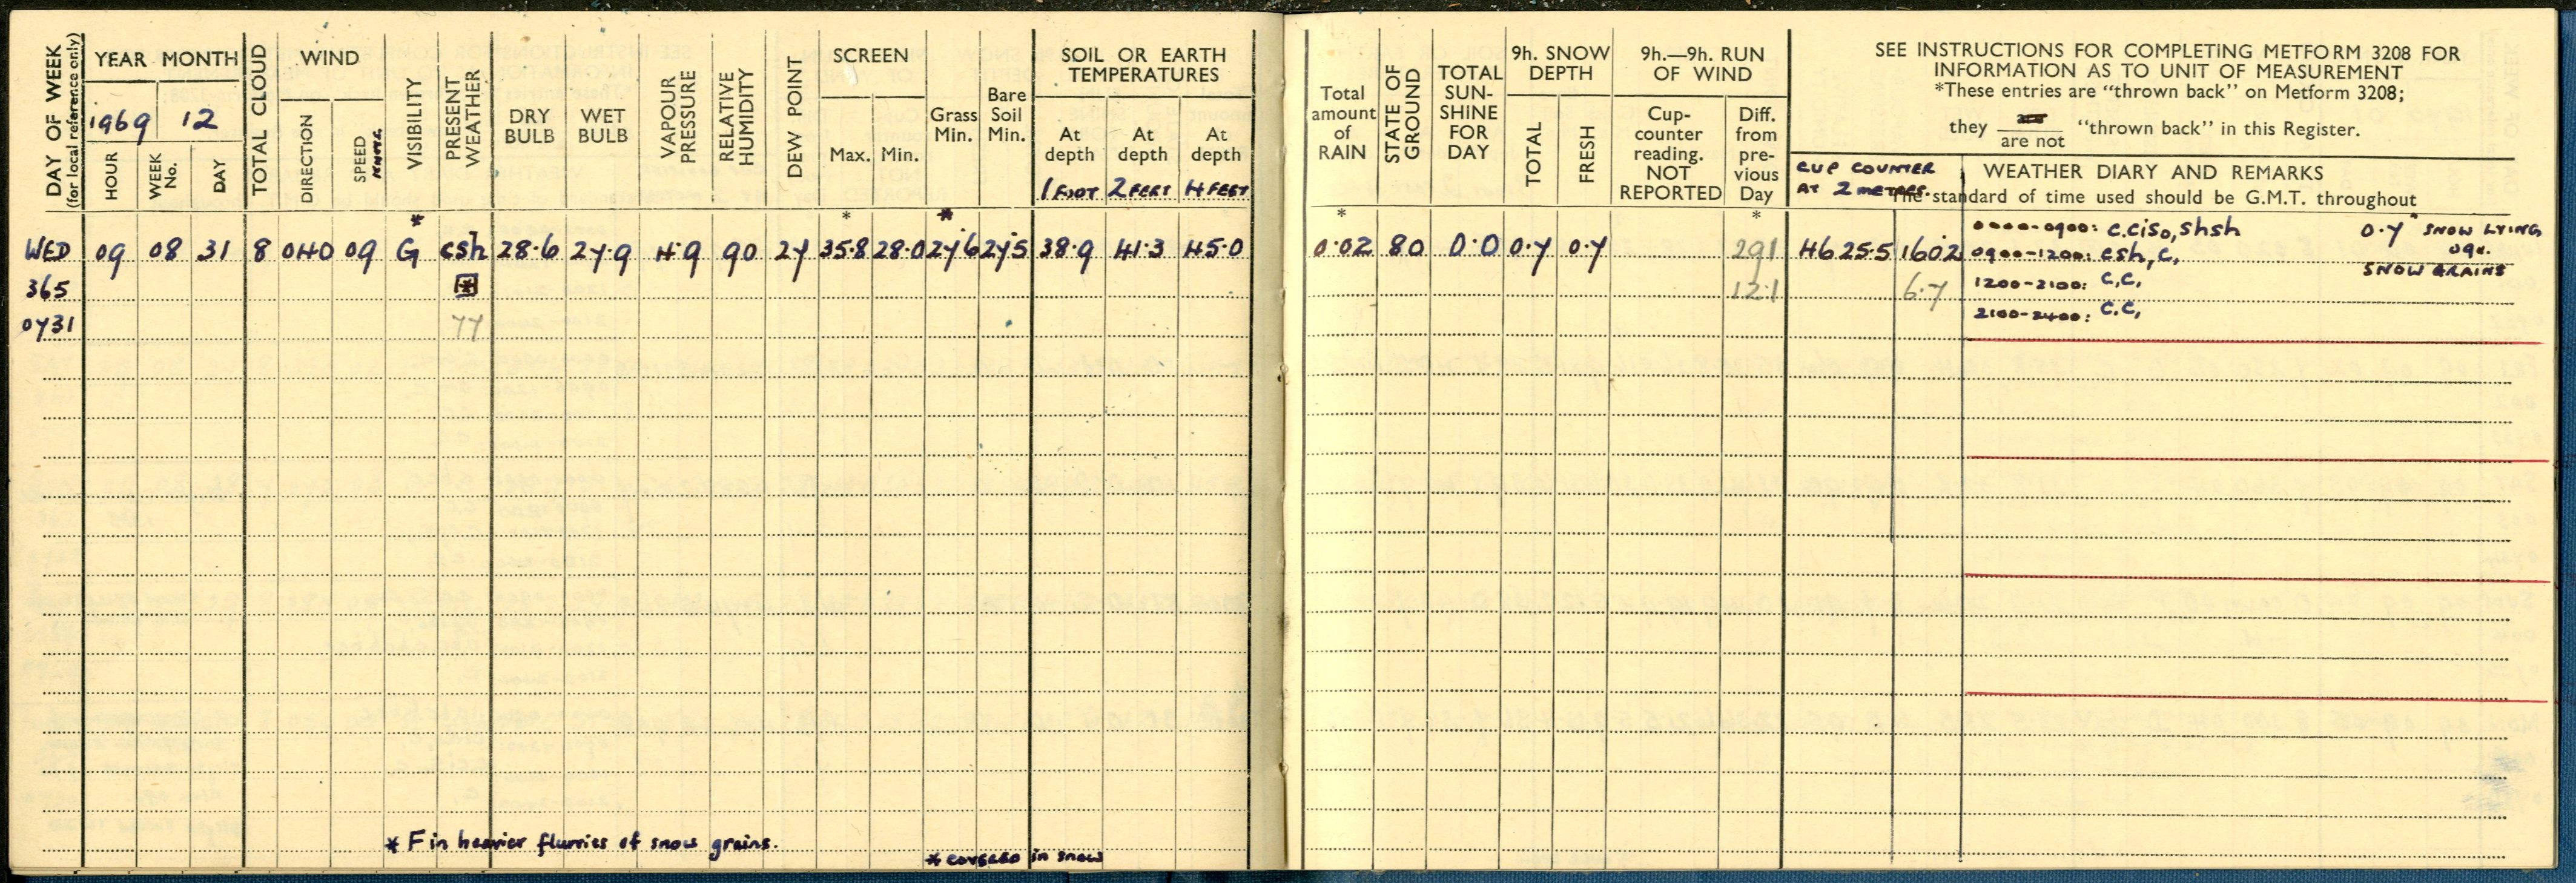 DAY OF WEEK
(for local reference only)
YEAR MONTH
1969 12
HOUR
WEEK No.
DAY
TOTAL CLOUD
WIND
DIRECTION
SPEED
KNOTS
VISIBILITY
PRESENT WEATHER
DRY BULB
WET BULB
VAPOUR PRESSURE
RELATIVE HUMIDITY
DEW POINT
SCREEN
Max. Min.
Grass Min.
Bare Soil Min.
SOIL OR EARTH TEMPERATURES
At depth At depth At depth
1 FOOT 2 FEET 4 FEET
Total amount of RAIN
STATE OF GROUND
TOTAL SUN-SHINE FOR DAY
9h. SNOW DEPTH
TOTAL
FRESH
9h.—9h. RUN OF WIND
Cup-counter reading. NOT REPORTED
Diff. from pre-vious Day
SEE INSTRUCTIONS FOR COMPLETING METFORM 3208 FOR
INFORMATION AS TO UNIT OF MEASUREMENT
*These entries are "thrown back" on Metform 3208;
they are not "thrown back" in this Register.
CUP COUNTER
AT 2 METRES.
WEATHER DIARY AND REMARKS
The standard of time used should be G.M.T. throughout
* * * * *
WED 09 08 31 8 040 09 G csh 28.6 27.9 4.9 90 27 35.8 28.0 27.6 27.5 38.9 41.3 45.0 0.02 80 0.0 0.7 0.7 291 4625.5 160.2
365 12.1 6.7
0731 77
0000-0900: c.ciso, shsh 0.7" SNOW LYING
09h.
0900-1200: csh, c,
SNOW GRAINS
1200-2100: c,c,
2100-2400: c.c,
* F in heavier flurries of snow grains.
* COVERED in snow